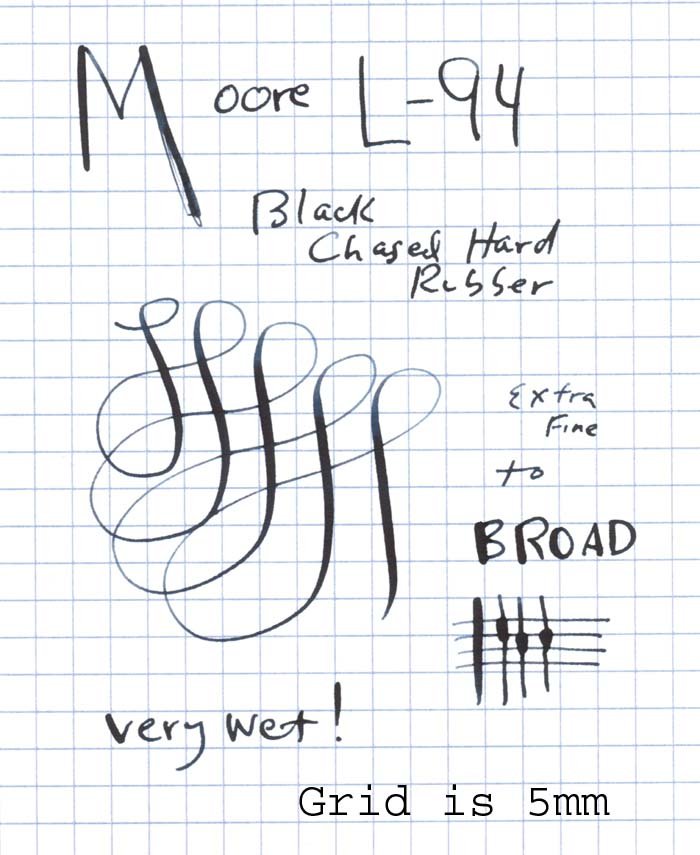 Moore L-94
Black
Chased Hard
Rubber
Extra
Fine
to
BROAD
very wet!
Grid is 5mm